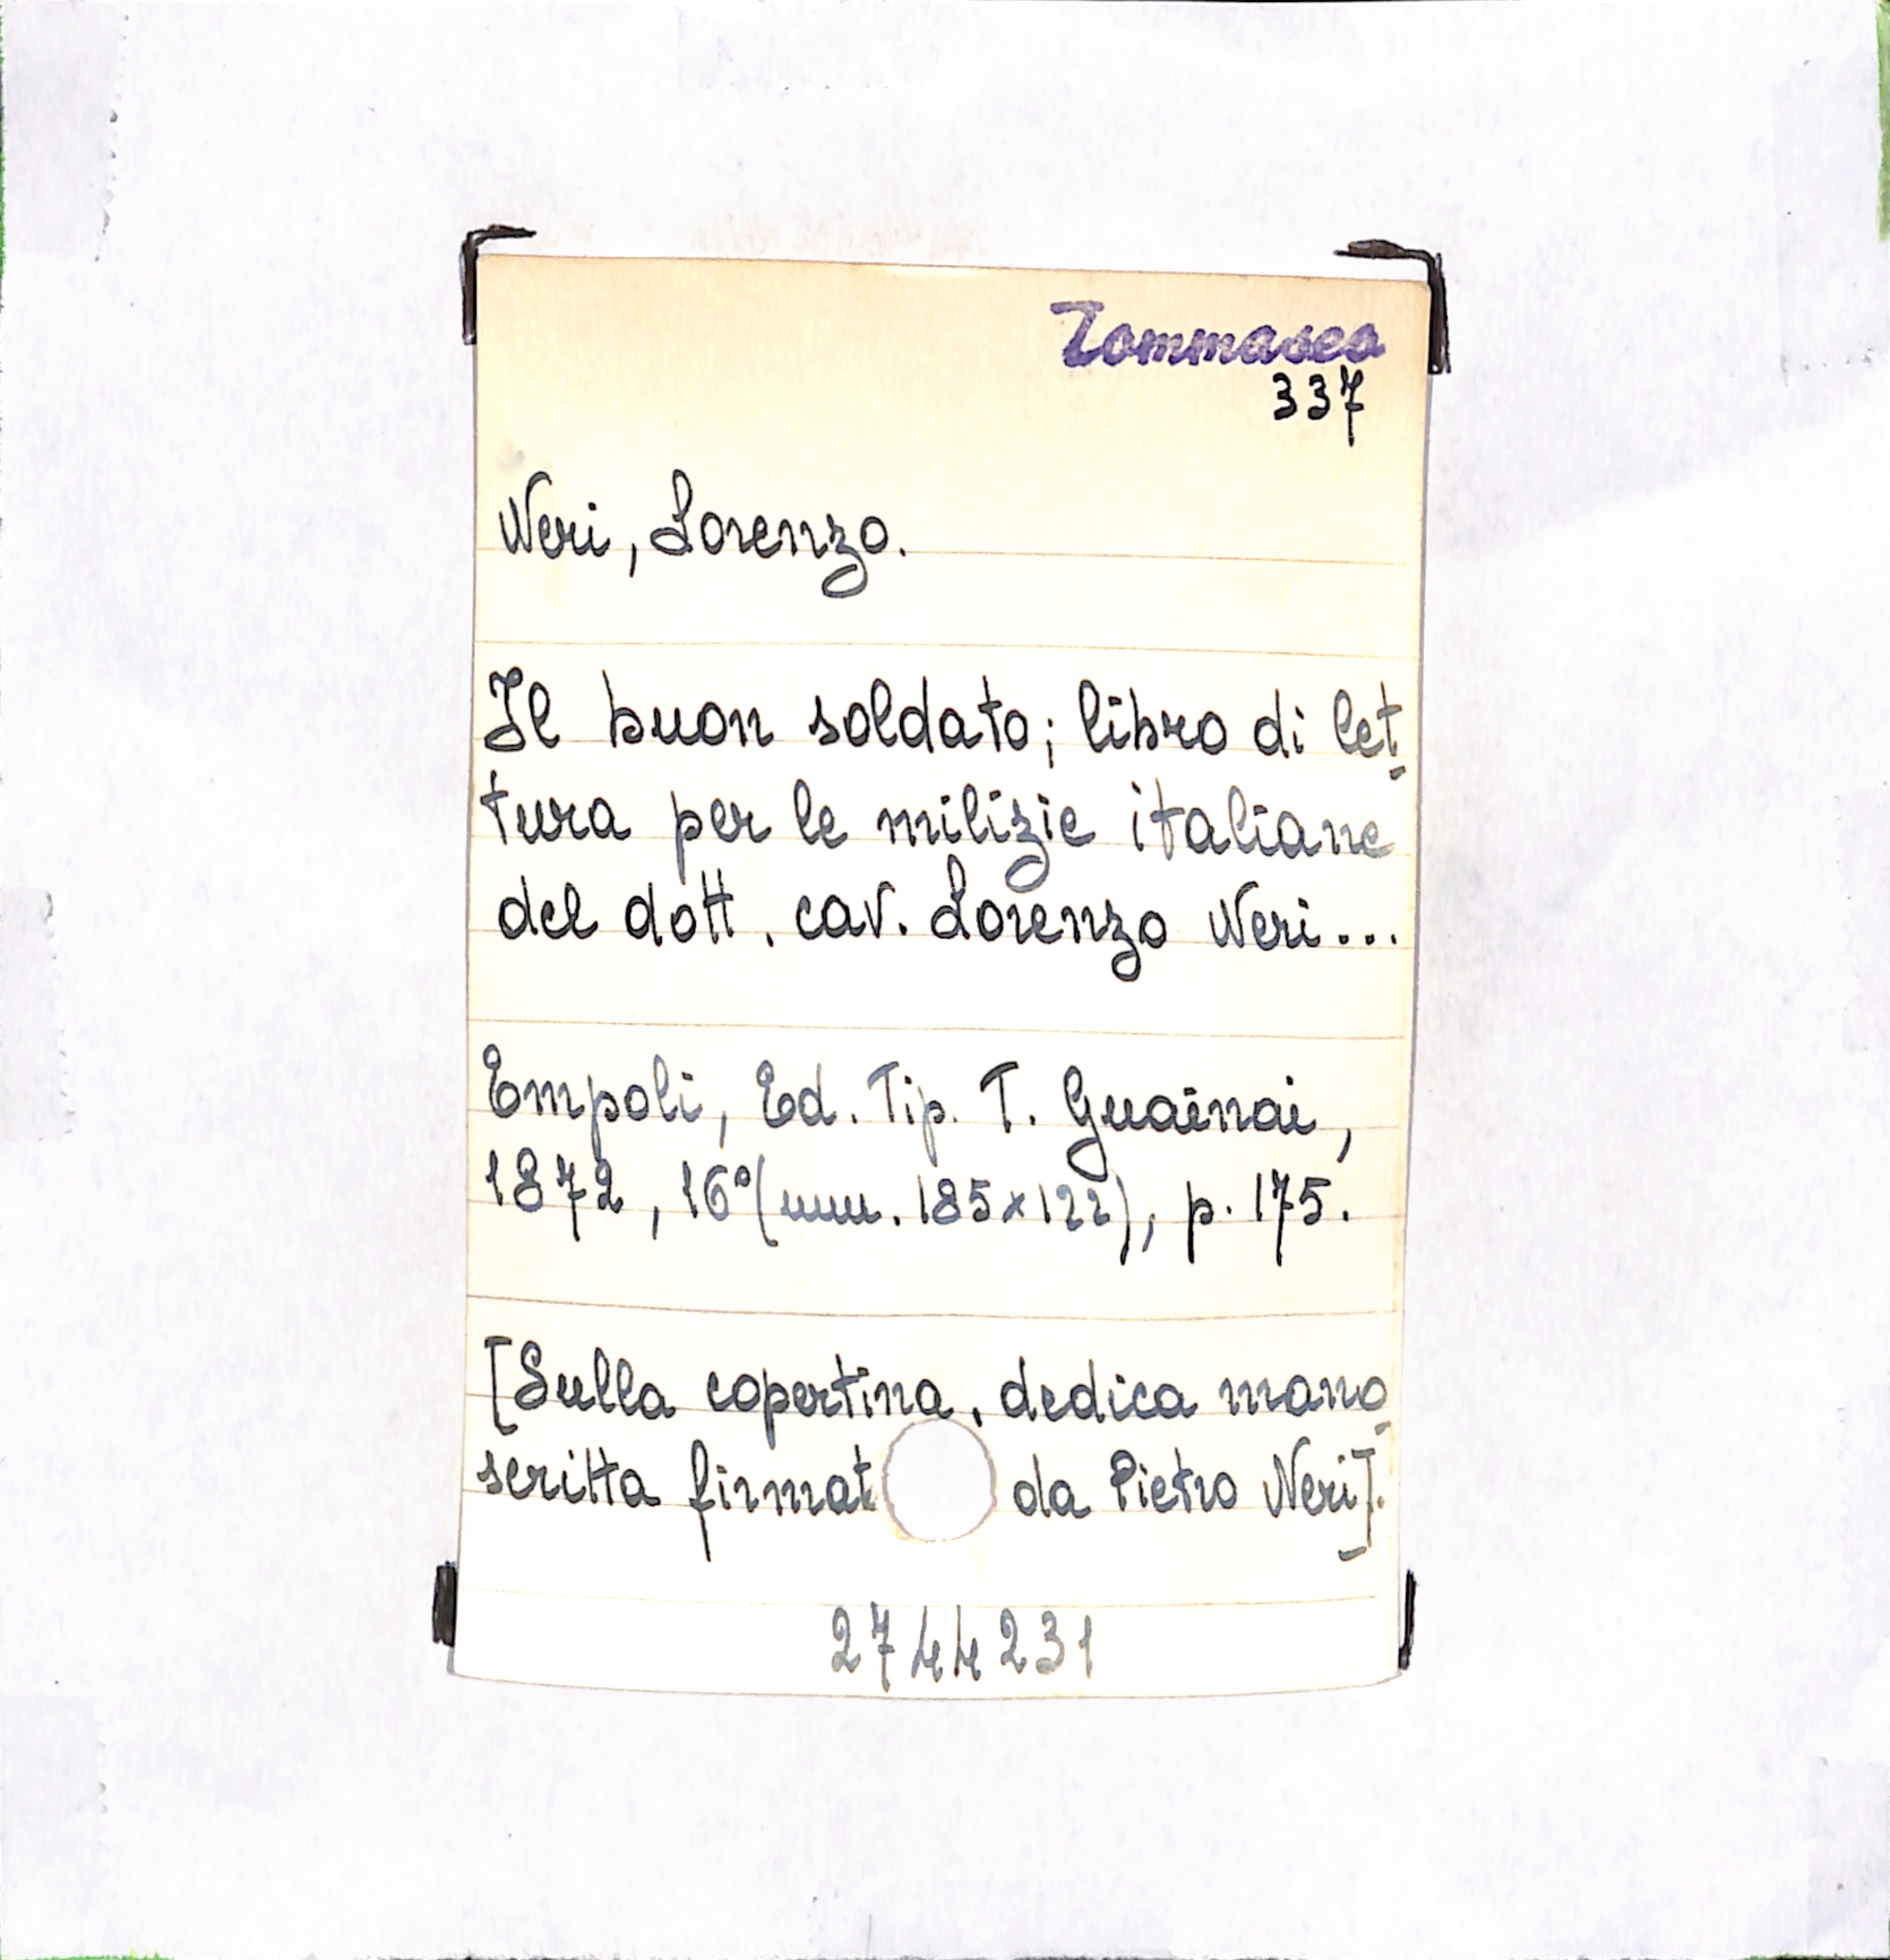 Tommaseo
337
Neri, Lorenzo.
Il buon soldato; libro di let-
tura per le milizie italiane
del dott. cav. Lorenzo Neri...
Empoli, Ed. Tip. T. Guainai,
1872, 16°(mm. 185x122), p. 175.
[Sulla copertina, dedica mano-
scritta firmat da Pietro Neri].
2744231